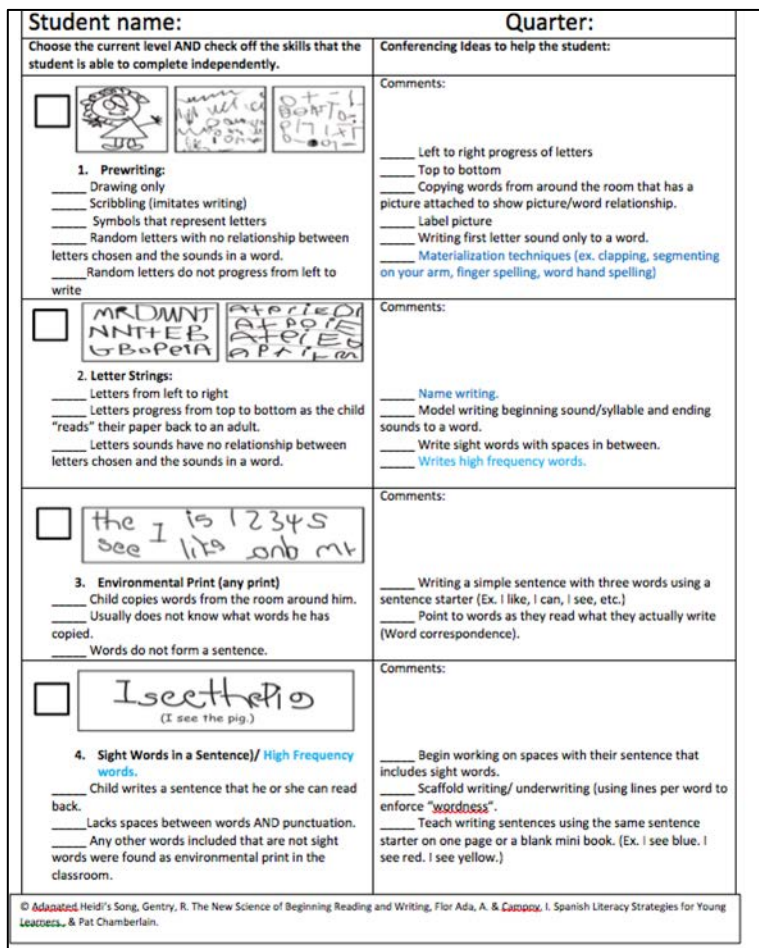 Student name:
Quarter:
Choose the current level AND check off the skills that the
student is able to complete independently.
Conferencing Ideas to help the student:
1. Prewriting:
_____ Drawing only
_____ Scribbling (imitates writing)
_____ Symbols that represent letters
_____ Random letters with no relationship between
letters chosen and the sounds in a word.
_____Random letters do not progress from left to
write
Comments:
_____ Left to right progress of letters
_____ Top to bottom
_____ Copying words from around the room that has a
picture attached to show picture/word relationship.
_____ Label picture
_____ Writing first letter sound only to a word.
_____ Materialization techniques (ex. clapping, segmenting
on your arm, finger spelling, word hand spelling)
MRDMNT
NNTHEB
GBOPeiA
2. Letter Strings:
_____ Letters from left to right
_____ Letters progress from top to bottom as the child
"reads" their paper back to an adult.
_____ Letters sounds have no relationship between
letters chosen and the sounds in a word.
Comments:
_____ Name writing.
_____ Model writing beginning sound/syllable and ending
sounds to a word.
_____ Write sight words with spaces in between.
_____ Writes high frequency words.
the I is 12345
see like
3. Environmental Print (any print)
_____ Child copies words from the room around him.
_____ Usually does not know what words he has
copied.
_____ Words do not form a sentence.
Comments:
_____ Writing a simple sentence with three words using a
sentence starter (Ex. I like, I can, I see, etc.)
_____ Point to words as they read what they actually write
(Word correspondence).
IseethePig
(I see the pig.)
4. Sight Words in a Sentence)/ High Frequency
words.
_____ Child writes a sentence that he or she can read
back.
_____Lacks spaces between words AND punctuation.
_____ Any other words included that are not sight
words were found as environmental print in the
classroom.
Comments:
_____ Begin working on spaces with their sentence that
includes sight words.
_____ Scaffold writing/ underwriting (using lines per word to
enforce "wordness".
_____ Teach writing sentences using the same sentence
starter on one page or a blank mini book. (Ex. I see blue. I
see red. I see yellow.)
© Adapated Heidi's Song, Gentry, R. The New Science of Beginning Reading and Writing, Flor Ada, A. & Campoy, I. Spanish Literacy Strategies for Young
Learners., & Pat Chamberlain.